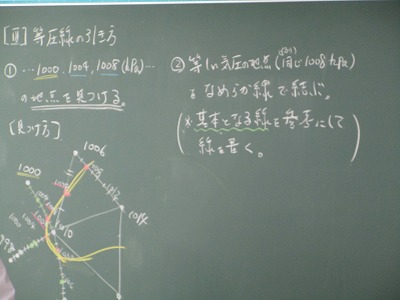 [Ⅱ] 等圧線の引き方
① …1000, 1004, 1008(hPa)…
の地点を見つける。
[見つけ方]
② 等しい気圧の地点(同じ1008hPa)
をなめらか線で結ぶ。
(※基本となる線を参考にして
線を書く。)
1006
1000
1012
1014
1010
998